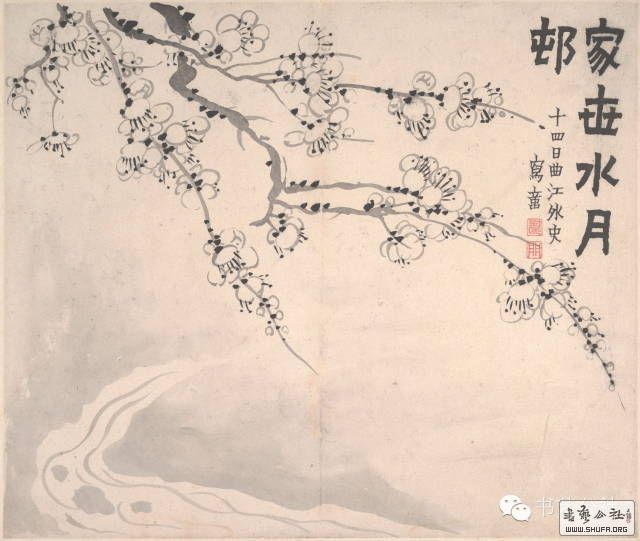 家世水月
邨
十四日曲江外史
寫畫
WWW.SHUFA.ORG